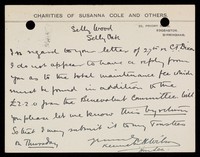 CHARITIES OF SUSANNA COLE AND OTHERS
Selly Wood
Selly Oak
BIRMINGHAM.
In regard to your letter of
I do not appear to have a reply from
you as to the total maintenance fee which
must be found in addition to the
£2.2.0 from the Benevolent Committee. Will
you please let me know this by return
So that I may submit it to my Trustees
on Thursday